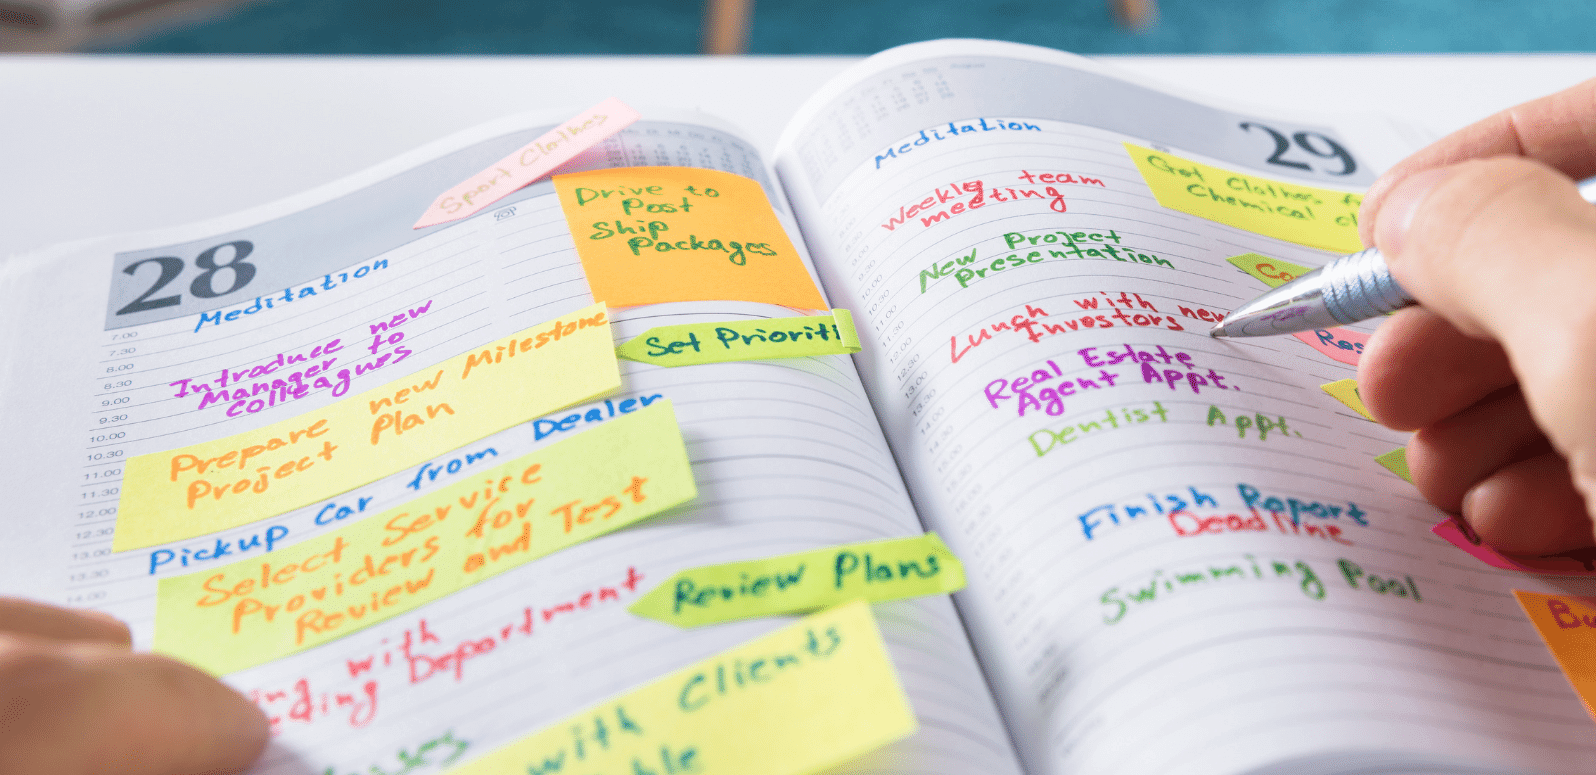 Sport Clothes
28
Meditation
Drive to
Post
Ship
Packages
Introduce new
Manager to
colleagues
Set Prioriti
Prepare new Milestone
Project Plan
Pickup Car from Dealer
Select Service
Providers for
Review and Test
Review Plans
with
Department
with Clients
7.00
7.30
8.00
8.30
9.00
9.30
10.00
10.30
11.00
11.30
12.00
12.30
13.00
13.30
14.00
29
Meditation
Get Clothes
Chemical
Weekly team
meeting
New Project
Presentation
Lunch with new
Investors
Real Estate
Agent Appt.
Dentist Appt.
Finish Report
Deadline
Swimming Pool